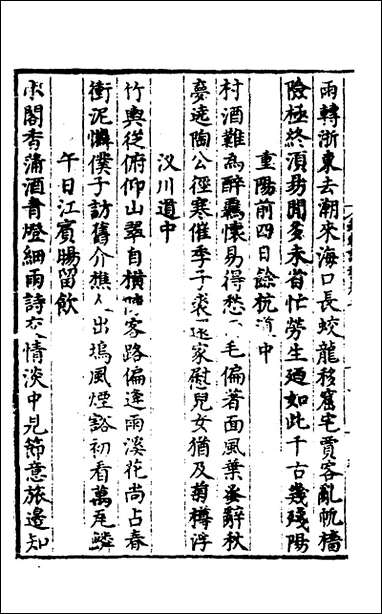 雨轉浙東去潮來海口長蛟龍移窟宅賈客亂帆檣
險極終須易聞多未省忙勞生迺如此千古幾殘陽
重陽前四日餘杭道中
村酒難為醉羈懷易得愁毛偏著面風葉亂辭秋
夢遶陶公徑寒催季子裘還家慰兒女猶及菊樽浮
汊川道中
竹輿從俯仰山翠自橫客路偏逢雨溪花尚占春
衝泥憐僕子訪舊介樵人出塢風煙豁初看萬瓦鱗
午日江賓暘留飲
水閣香蒲酒書燈細雨詩衣情淡中見節意旅邊知